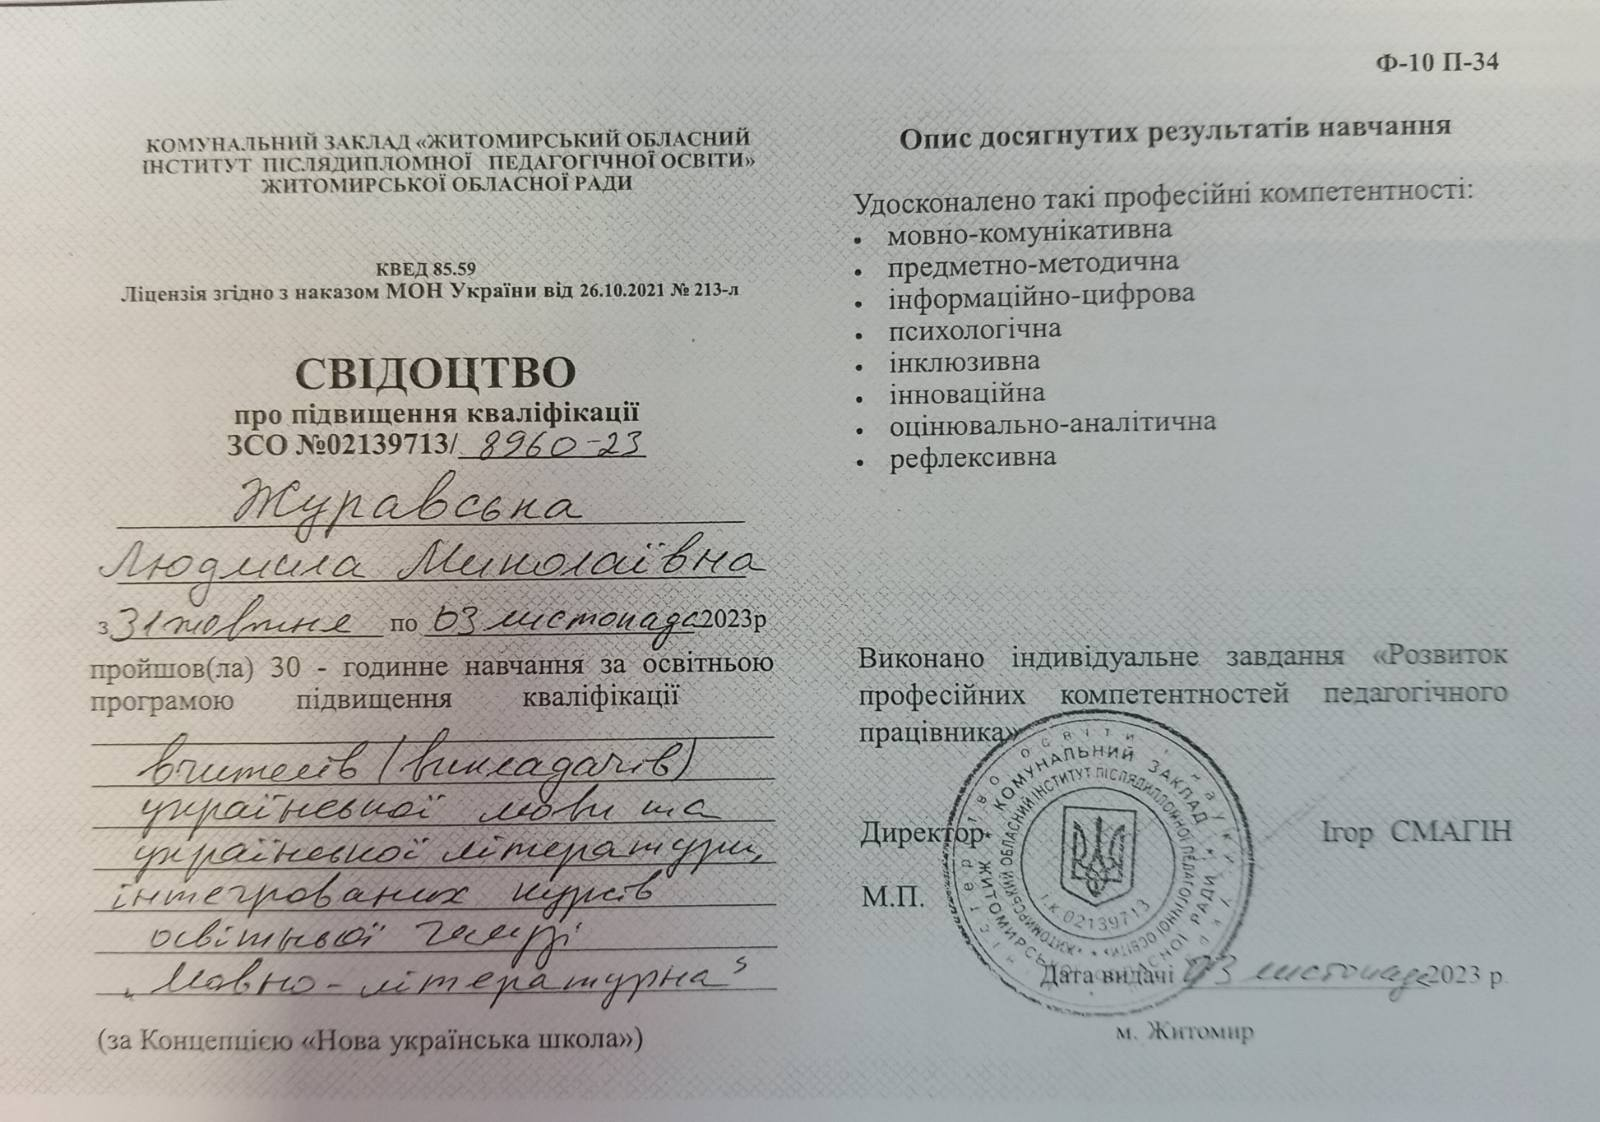 Ф-10 П-34
КОМУНАЛЬНИЙ ЗАКЛАД «ЖИТОМИРСЬКИЙ ОБЛАСНИЙ
ІНСТИТУТ ПІСЛЯДИПЛОМНОЇ ПЕДАГОГІЧНОЇ ОСВІТИ»
ЖИТОМИРСЬКОЇ ОБЛАСНОЇ РАДИ
КВЕД 85.59
Ліцензія згідно з наказом МОН України від 26.10.2021 № 213-л
СВІДОЦТВО
про підвищення кваліфікації
ЗСО №02139713/ 8960-23
Журавська
Людмила Миколаївна
з 31 жовтня по 03 листопада 2023р
пройшов(ла) 30 - годинне навчання за освітньою
програмою підвищення кваліфікації
вчителів (викладачів)
української мови та
української літератури,
інтегрованих курсів
освітньої галузі
„Мовно-літературна"
(за Концепцією «Нова українська школа»)
Опис досягнутих результатів навчання
Удосконалено такі професійні компетентності:
• мовно-комунікативна
• предметно-методична
• інформаційно-цифрова
• психологічна
• інклюзивна
• інноваційна
• оцінювально-аналітична
• рефлексивна
Виконано індивідуальне завдання «Розвиток
професійних компетентностей педагогічного
працівника»
Директор Ігор СМАГІН
М.П.
КОМУНАЛЬНИЙ ЗАКЛАД
ЖИТОМИРСЬКОЇ ОБЛАСНОЇ РАДИ
«ЖИТОМИРСЬКИЙ ОБЛАСНИЙ ІНСТИТУТ ПІСЛЯДИПЛОМНОЇ ПЕДАГОГІЧНОЇ ОСВІТИ»
І.К. 02139713
Дата видачі 03 листопада 2023 р.
м. Житомир